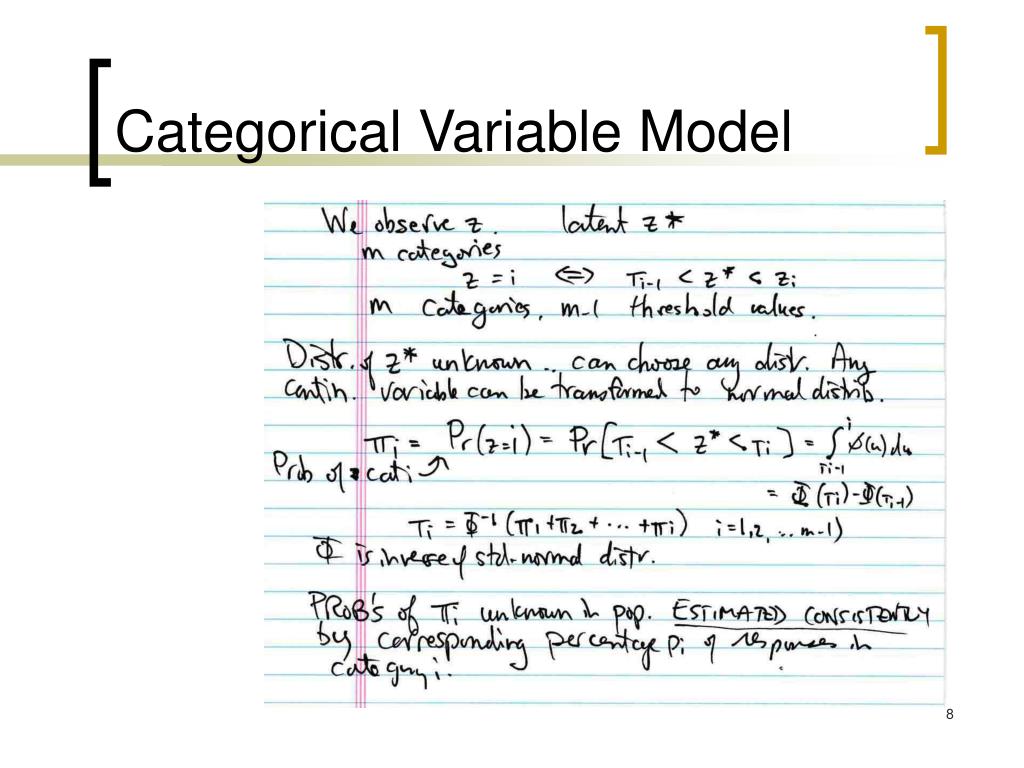 Categorical Variable Model
We observe z. latent z*
m categories
z = i ⇔ τi-1 < z* ≤ zi
m categories, m-1 threshold values.
Distr. of z* unknown .. can choose any distr. Any
contin. variable can be transformed to normal distrib.
πi = Pr(z=i) = Pr[τi-1 < z* < τi] = ∫τi-1^i φ(u)du
Prob of cat i
= Φ(τi)-Φ(τi-1)
τi = Φ⁻¹(π1+π2+ ... +πi) i=1,2, ... m-1)
Φ is inverse of std-normal distr.
PROB's of πi unknown in pop. ESTIMATED CONSISTENTLY
by corresponding percentage pi of responses in
category i.
8